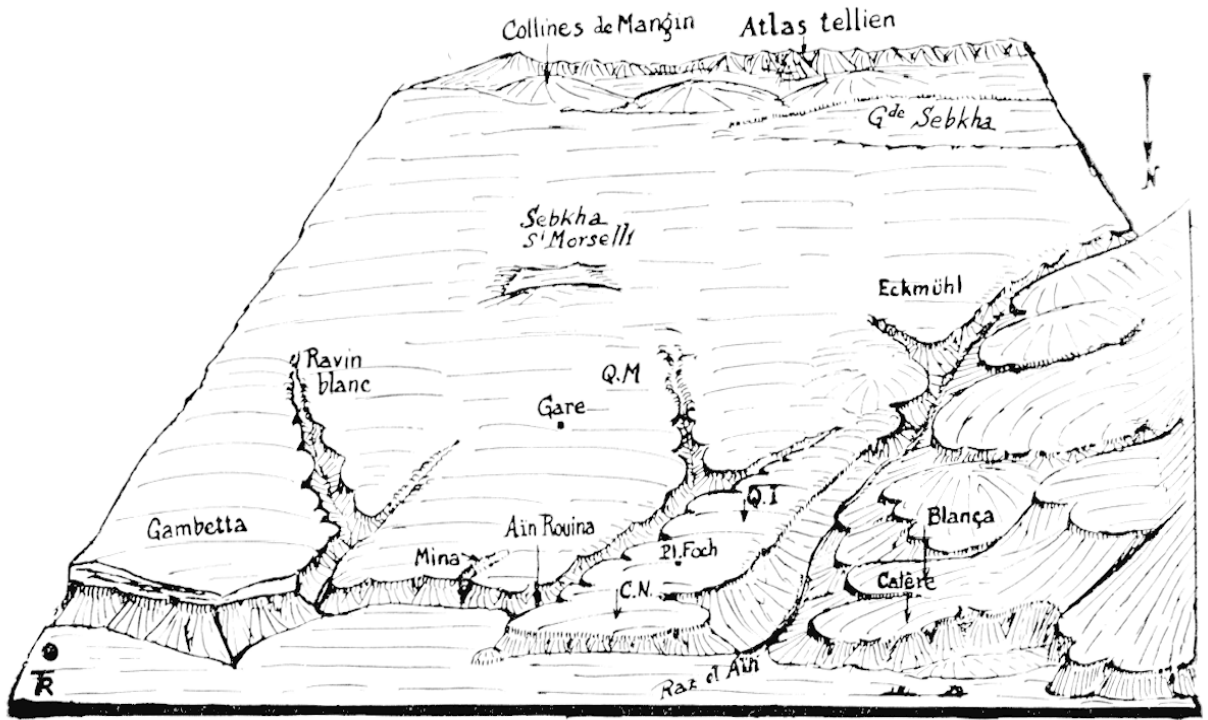 Collines de Mangin
Atlas tellien
Gde Sebkha
N
Sebkha
St Morselli
Eckmühl
Ravin
blanc
Q.M
Gare
Q.I
Gambetta
Aïn Rouina
Blança
Mina
Pl. Foch
C.N.
Calère
Raz el Aïn
TR